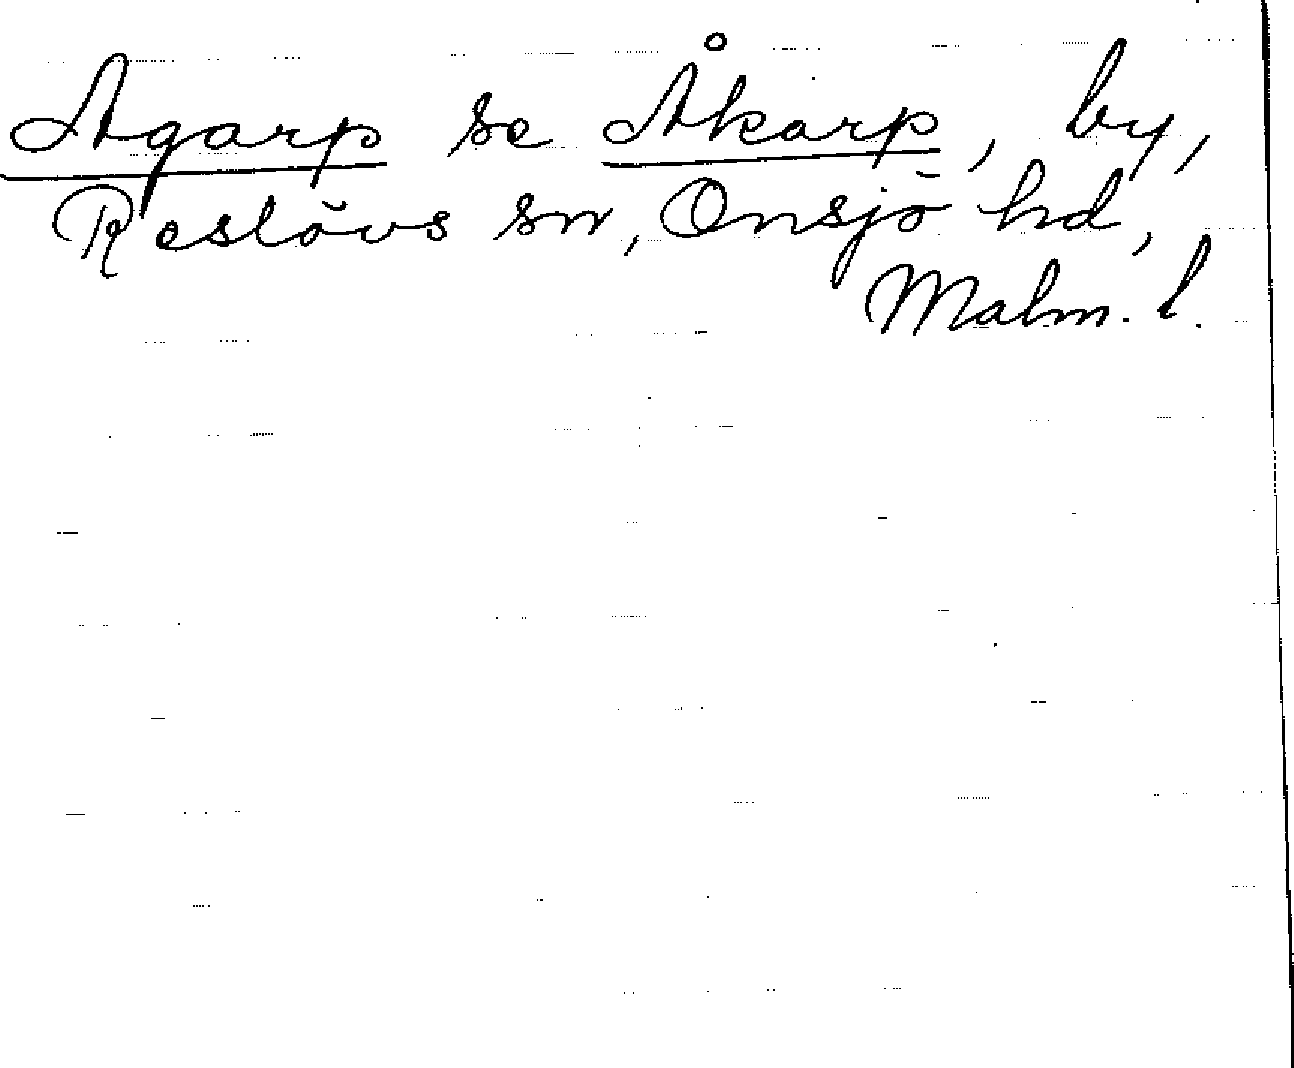 Agarp se Åkarp, by,
Reslövs sn, Onsjö hd,
Malm. l.